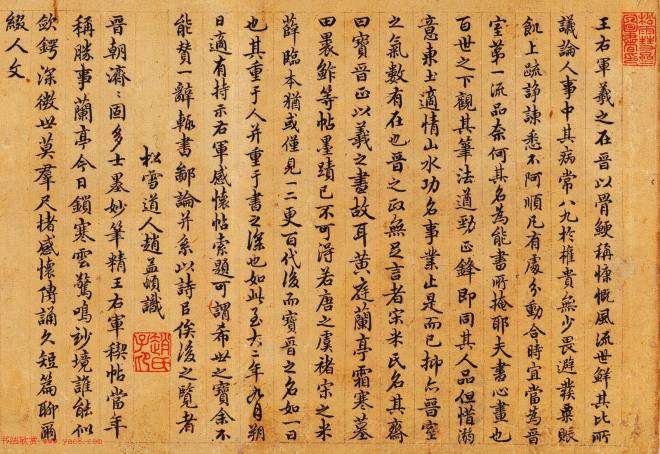 王右軍羲之在晉以骨鯁稱慷慨風流世鮮其比所
議論人事中其病常八九於權貴無少畏避發粟賑
飢上疏諍諫悉不阿順凡有處分動合時宜當為晉
室第一流品奈何其名為能書所掩耶夫書心畫也
百世之下觀其筆法遒勁正鋒即同其人品但惜溺
意東土適情山水功名事業止是而已抑亦晉室
之氣數有在也晉之政無足言者宋米氏名其齋
曰寶晉正以羲之書故耳黃庭蘭亭霜寒墓
田裹鮓等帖墨蹟已不可得若唐之虞褚宋之米
薛臨本猶或僅見一二更百代後而寶晉之名如一日
也其重于人并重于書之深也如此至大二年九月朔
日適有持示右軍感懷帖索題可謂希世之寶余不
能贊一辭輒書鄙論并系以詩呂俟後之覽者
松雪道人趙孟頫識
趙氏子昂
晉朝濟〻固多士墨妙筆精王右軍禊帖當年
稱勝事蘭亭今日鎖寒雲驚鳴妙境誰能似
歛鍔深微世莫羣尺楮感懷傳誦久短篇聊爾
綴人文
书法欣赏 www.yac8.com